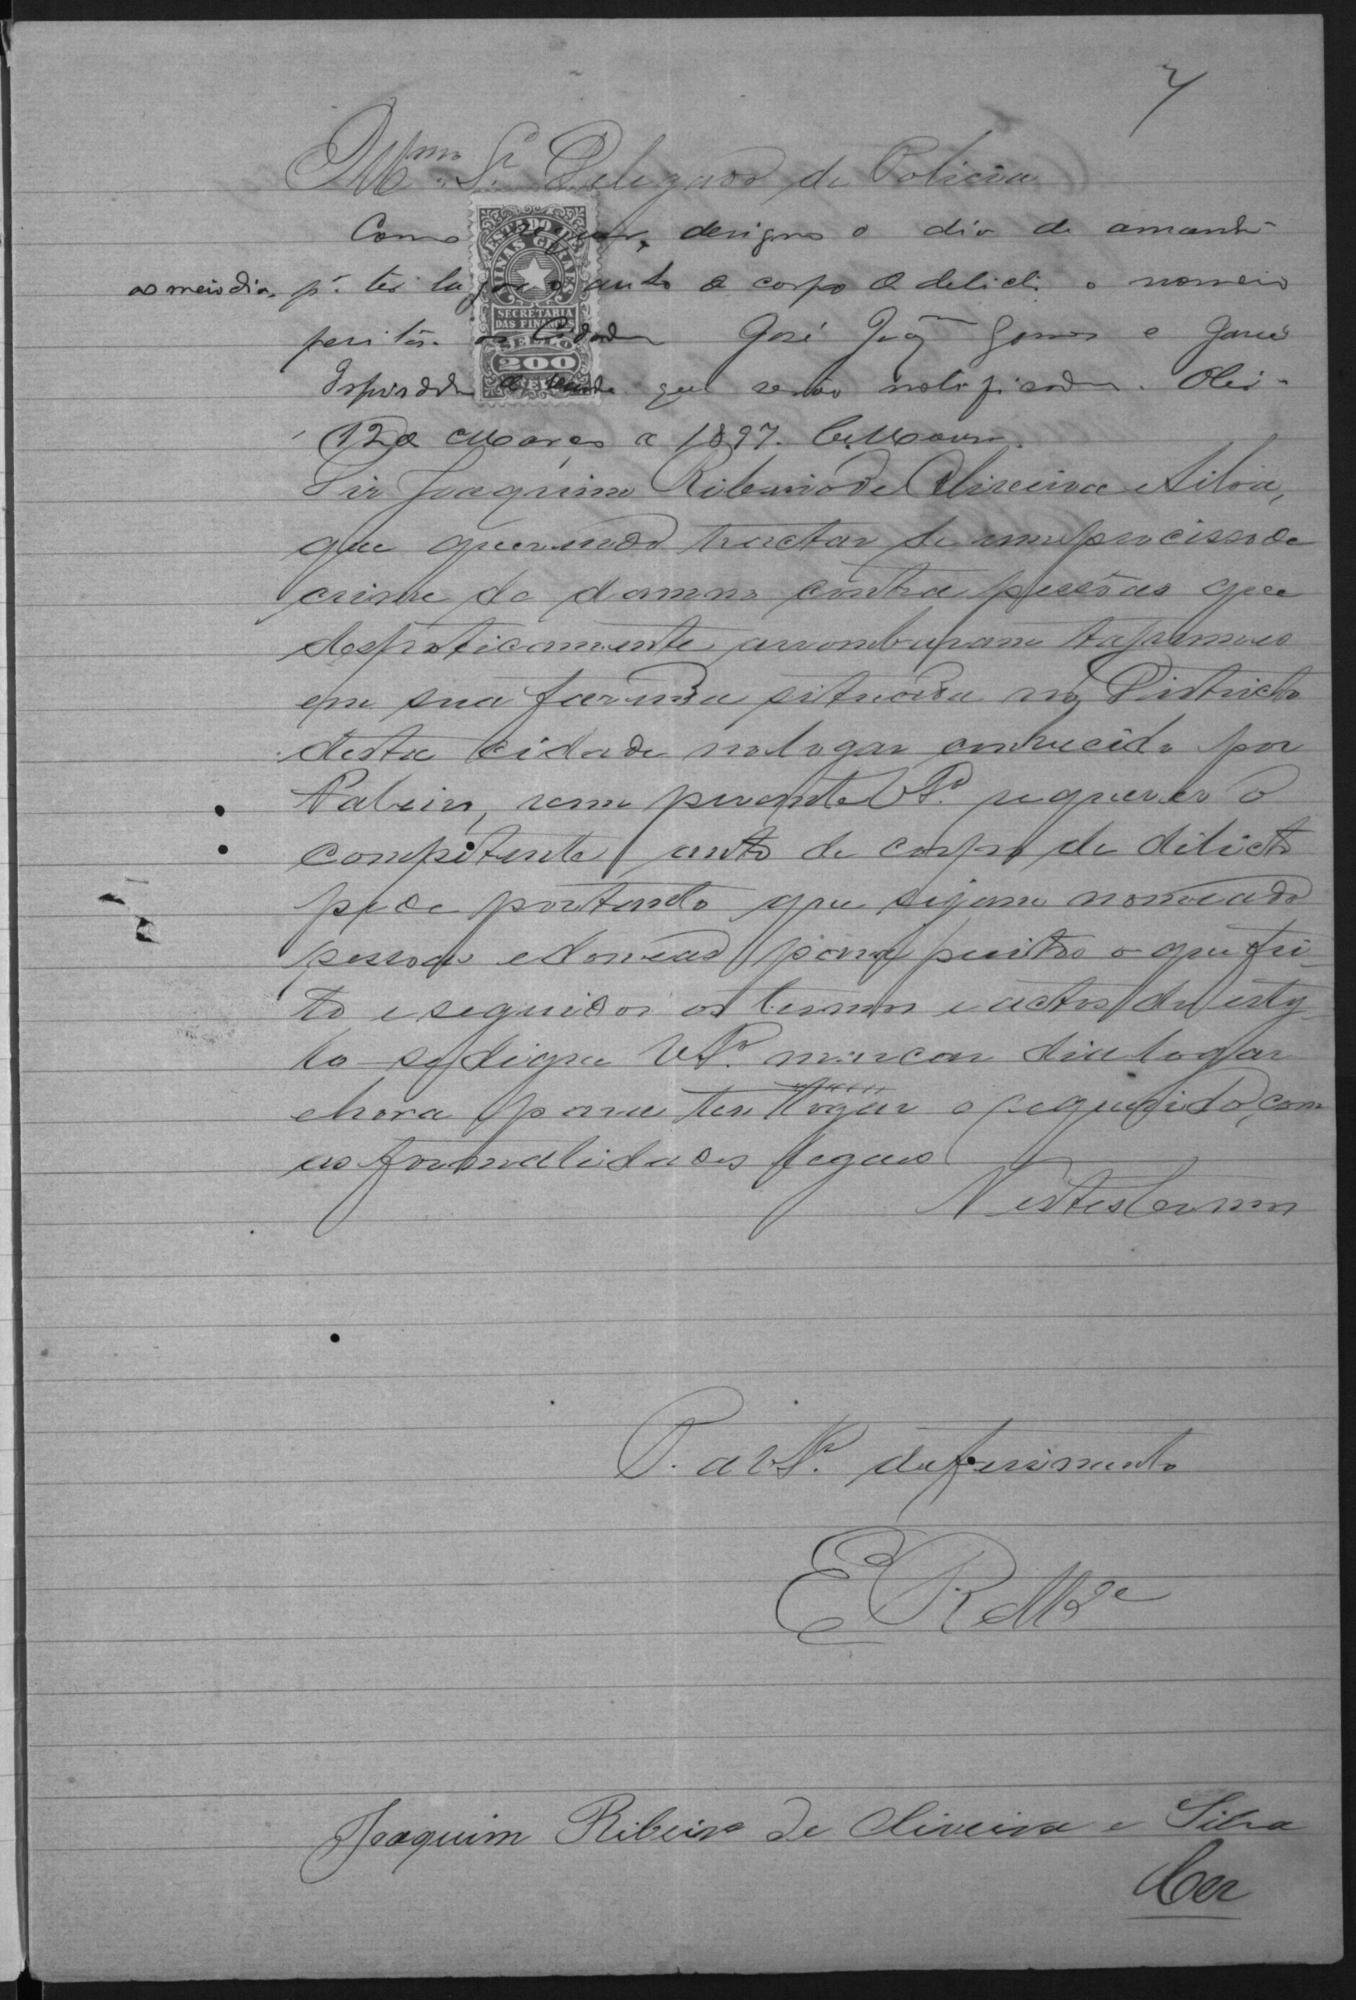 4
Illmo. Sr. Delegado de Policia
Como requer, designo o dia de amanhã
ao meio dia, pa. ter lugar o auto de corpo de delicto e nomeio
peritos os Cidadãos José Joaqm Gomes e
que serão notificados. Olivª
12 de Março de 1897.
Diz Joaquim Ribeiro de Oliveira e Silva,
que querendo tractar de um processo de
crime de damno contra pessôas que
despoticamente arrombaram tapumes
em sua fazenda situada no Districto
desta cidade no logar conhecido por
vem perante V. Sa. requerer o
competente auto de corpo de delicto
pede portanto que sejam nomeados
pessoas edoneas para peritos o que fei-
to e seguidos os termos e actos do esty-
lo se digne V. Sa. marcar dia logar
e hora para ter logar o requerido, com
as formalidades legaes
Nestes termos
P. a V. Sa. defferimento
E. R. Mce
Joaquim Ribeiro de Oliveira e Silva